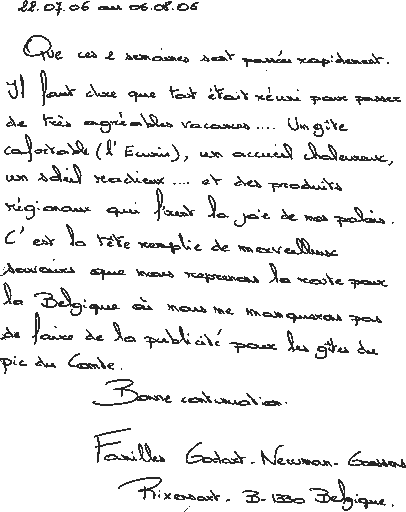 22.07.06 au 06.08.06
Que ces 2 semaines sont passées rapidement.
Il faut dire que tout était réuni pour passer
de très agréables vacances.... Un gîte
confortable (l'Ecurie), un accueil chaleureux,
un soleil radieux.... et des produits
régionaux qui firent la joie de nos palais.
C'est la tête remplie de merveilleux
souvenirs que nous reprenons la route pour
la Belgique où nous ne manquerons pas
de faire de la publicité pour les gîtes du
pic du Comte.
Bonne continuation.
Familles Godart - Newman - Goossens
Rixensart - B-1330 Belgique.